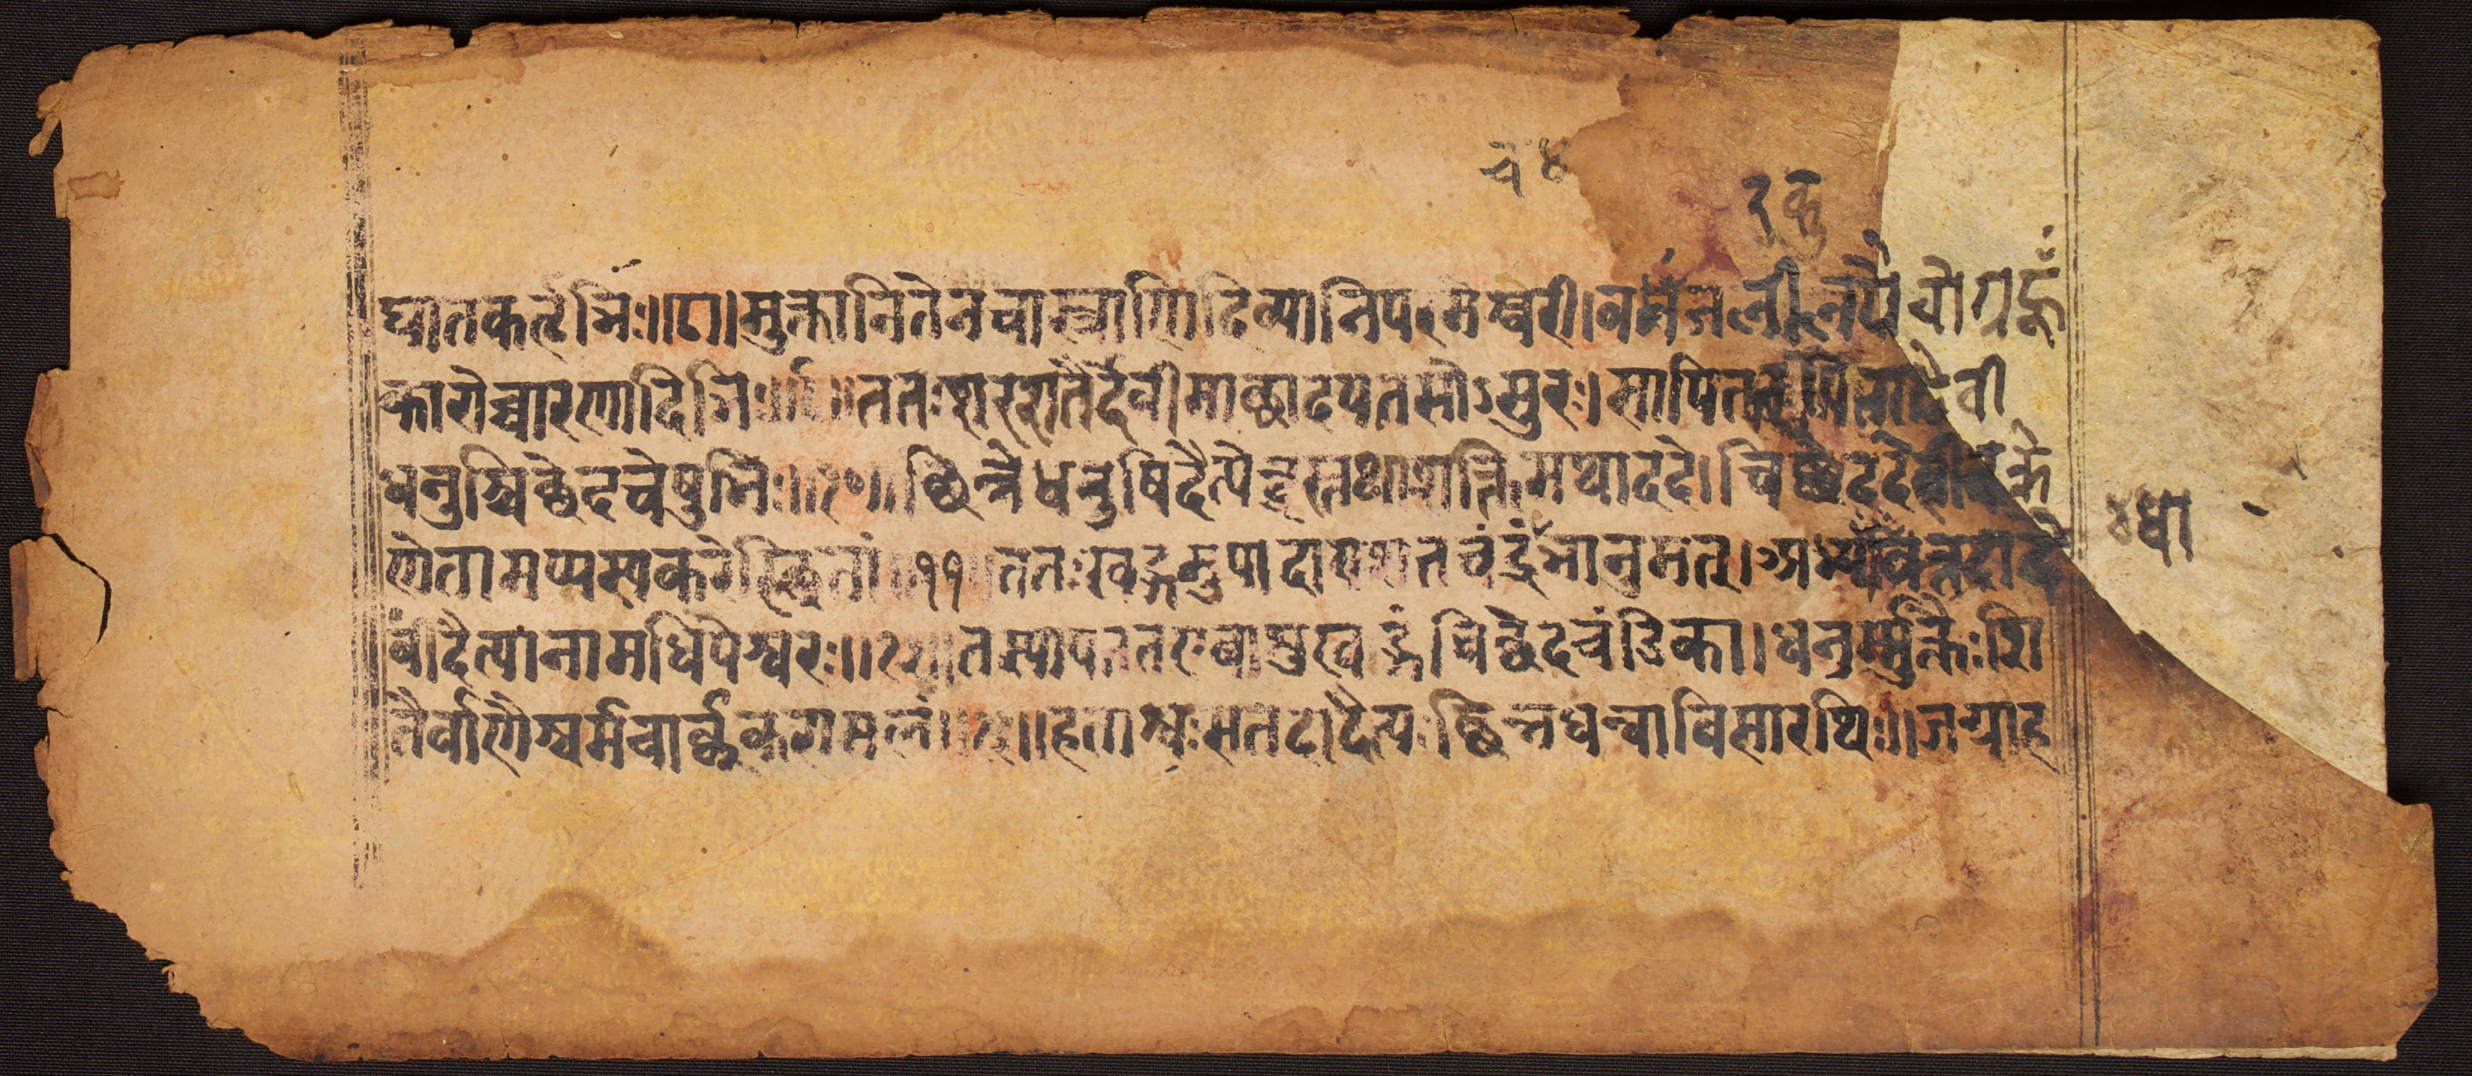 च ४
दुक्रु
घातकर्तृभिः॥८॥मुक्तानितेनचास्त्राणिदिव्यानिपरमेश्वरी।वभंजलीलयैवोग्रहूँ
कारोच्चारणादिभिः॥९॥ततःशरशतैर्देवीमाच्छादयतसोऽसुरः।सापितत्कुपितादेवी
धनुश्चिछेदचेषुभिः॥१०॥छिन्नेधनुषिदैत्येन्द्रस्तथाशक्तिमथाददे।चिछेददेवीचक्रे
णेतामप्यस्यकरेस्थितां॥११॥ततःखड्गमुपादायशतचंद्रंभानुमत्।अभ्यधावत्तदादे
वींदैत्यानामधिपेश्वरः॥१२॥तस्यापततएवाशुखड्गंचिछेदचंडिका।धनुर्मुक्तैःशि
तैर्वाणैश्चर्मचार्ककरामलं॥१३॥हताश्वःसतदादैत्यःछिन्नधन्वाविसारथिः॥जग्राह
४धा